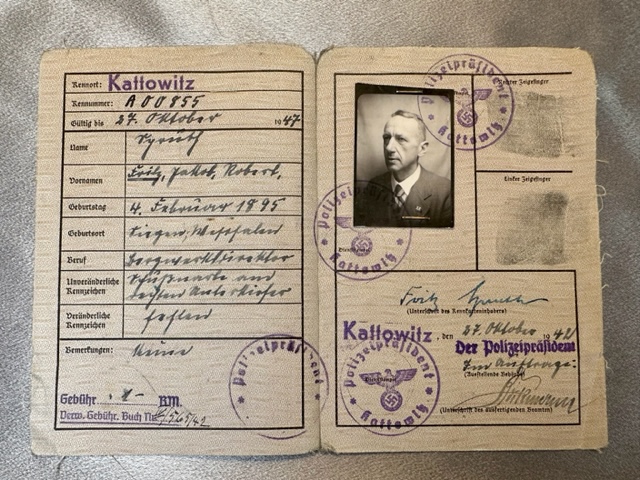 Kennort: Kattowitz
Kennummer: A 00855
Gültig bis 27. Oktober 1947
Name Spruth
Vornamen Fritz, Jakob, Robert,
Geburtstag 4. Februar 1895
Geburtsort Siegen, Westfalen
Beruf Bergwerksdirektor
Unveränderliche Kennzeichen Schußnarbe am rechten Unterkiefer
Veränderliche Kennzeichen fehlen
Bemerkungen: Keine
Gebühr 1 RM.
Verw. Gebühr. Buch Nr.
Polizeipräsident Kattowitz
Rechter Zeigefinger
Polizeipräsident Kattowitz
Linker Zeigefinger
Fritz Spruth
(Unterschrift des Kennkarteninhabers)
Kattowitz, den 27. Oktober 1942
Der Polizeipräsident
Im Auftrage:
(Ausstellende Behörde)
Polizeipräsident Kattowitz
Dienststempel
(Unterschrift des ausfertigenden Beamten)